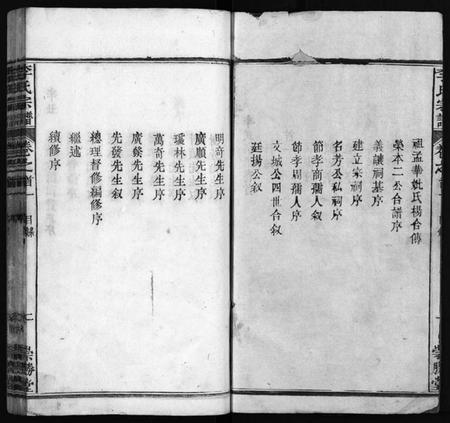 李氏宗譜
卷之首
目錄
崇勝堂
祖孟華妣氏楊合傳
榮本二公合譜序
義讓祠基序
建立宗祠序
名芳公私祠序
節孝商孺人叙
節孝周孺人序
文城公四世合叙
廷揚公叙
明奇先生序
廣順先生序
瓊林先生序
萬奇先生序
廣錢先生序
先發先生叙
總理督修編修序
繼述
續修序
李氏宗譜
卷之首
目錄
崇勝堂